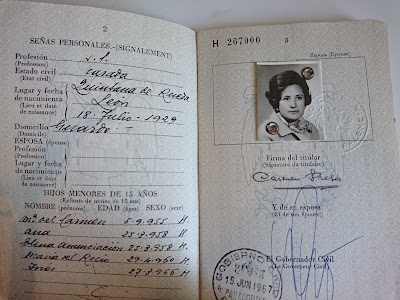 2
SEÑAS PERSONALES - (SIGNALEMENT)
Profesión s. l.
(Profession)
Estado civil casada
(Etat civil)
Lugar y fecha Quintana de Rueda
de nacimiento León
(Lieu et date
de naissance) 18 - Julio - 1929
Domicilio
ESPOSA (épouse)
Profesión
(Profession)
Lugar y fecha
de nacimiento
(Lieu et date de
naissance)
HIJOS MENORES DE 15 AÑOS
(Enfants de moins de 15 ans)
NOMBRE (prénom) EDAD (âge) SEXO (sexe)
Mª del Carmen 5-9-955 H
Ana 25-7-958 H.
Elena Anunciación 25-3-958 H.
María del Rocío 29-4-960 H
Inés 27-7-966 H
H 267000 3
Esposa (Épouse)
Firma del titular
(Signature du titulaire)
Carmen
Y de su esposa
(Et de son épouse)
El Gobernador Civil
(Le Gouverneur Civil)
GOBIERNO
15 JUN 1967